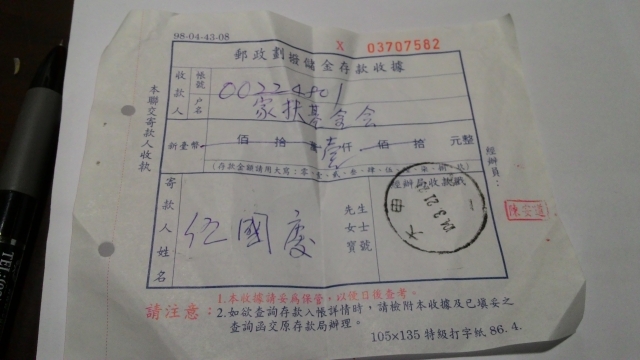 98-04-43-08
X 03707582
郵政劃撥儲金存款收據
收款人
帳號 00224801
戶名 家扶基金會
新臺幣 佰 拾 壹 仟 佰 拾 元整
(存款金額請用大寫:零、壹、貳、叁、肆、伍、陸、柒、捌、玖)
寄款人姓名
伍國慶
先生
女士
寶號
經辦局收款戳
經辦員:
本聯交寄款人收款
請注意:1.本收據請妥為保管,以便日後查考。
2.如欲查詢存款入帳詳情時,請檢附本收據及已填妥之
查詢函交原存款局辦理。
105x135 特級打字紙 86.4.
TEL: